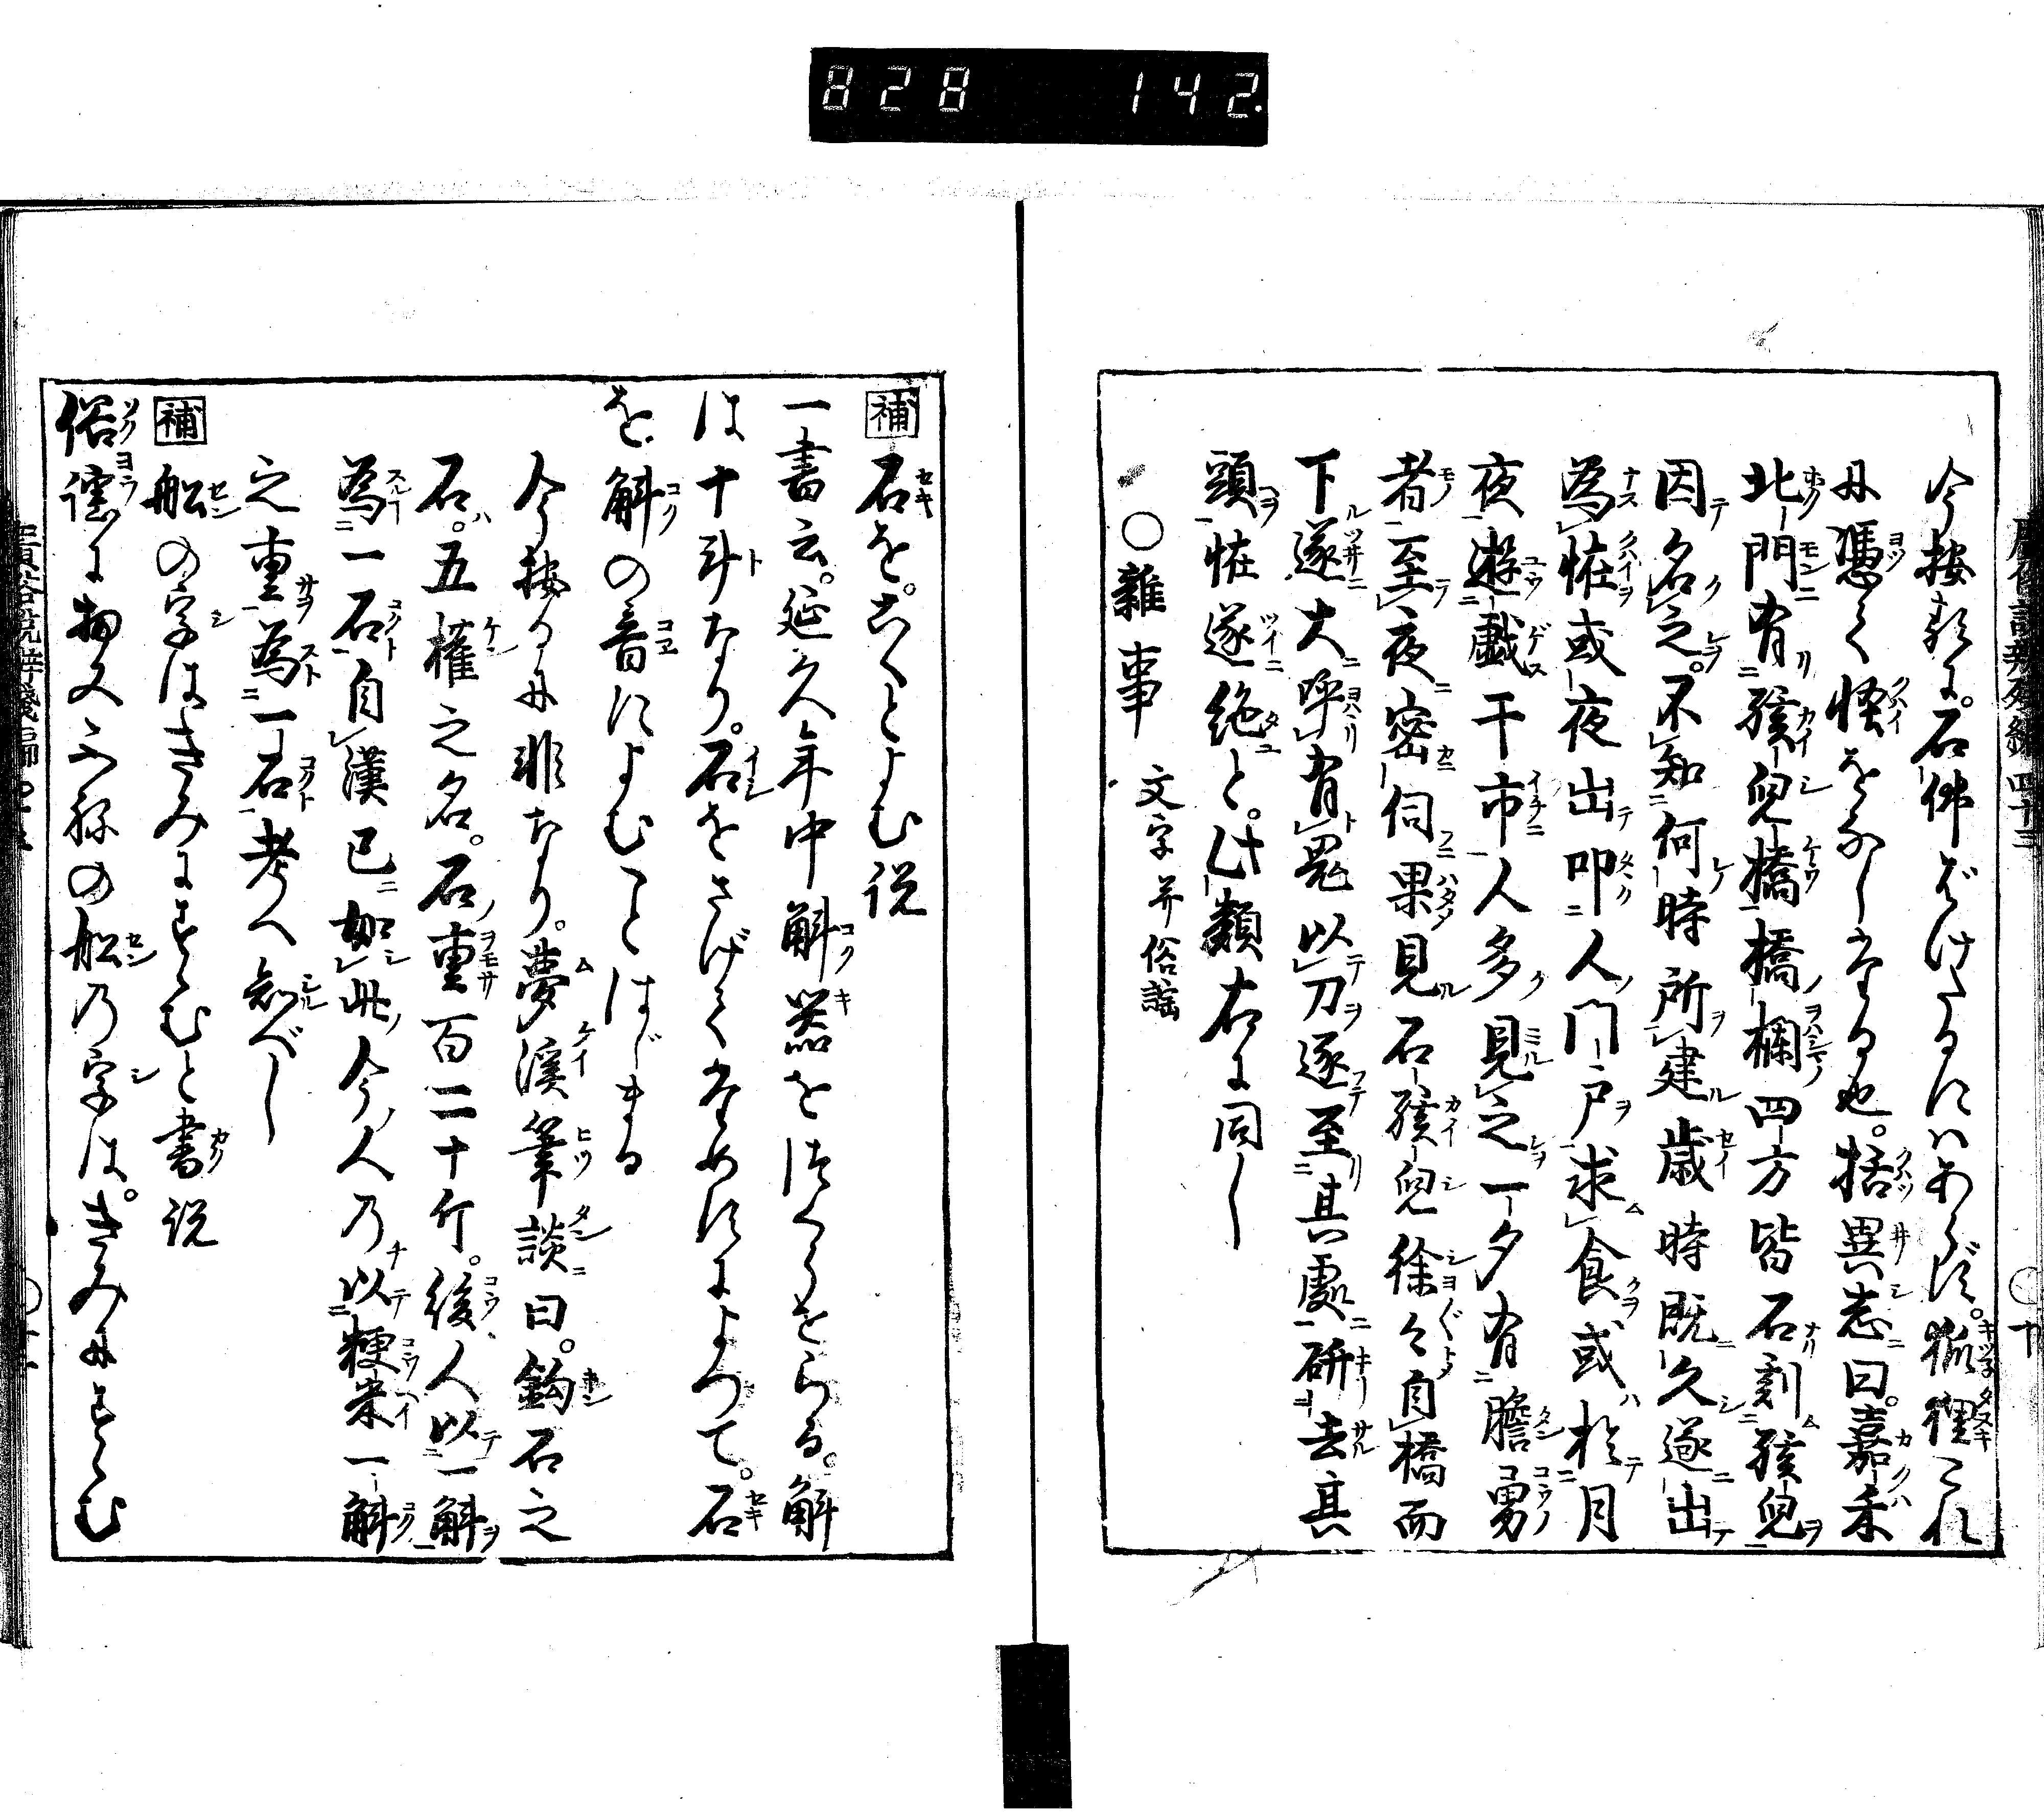 828 142
今按ずるに。石佛ばけたるにはあらず。狐狸これ
に憑て怪をなしたる也。括異志曰。嘉禾
北門有孩兒橋橋欄四方皆石刻孩兒
因名之。不知何時所建歳時既久遂出
為恠或夜出叩人門戸求食或於月
夜遊戯于市人多見之一夕有膽勇
者至夜密伺果見石孩兒徐々自橋而
下遂大呼有鬼以刀逐至其處斫去其
頭恠遂絶と。此類右に同し
○雜事 文字并俗謡
補 石を。こくとよむ説
一書云。延久年中斛器をつくらせらる。斛
は十斗なり。石をさげてためすによつて。石
を斛の音によむことはじまる
今按るに非なり。夢溪筆談曰。鈎石之
石。五權之名。石重百二十斤。後人以一斛
為一石自漢已如此今人乃以粳米一斛
之重為一石考へ知べし
補 船の字はきみにすゝむと書説
俗謡に
の船乃字は。きみにすゝむ